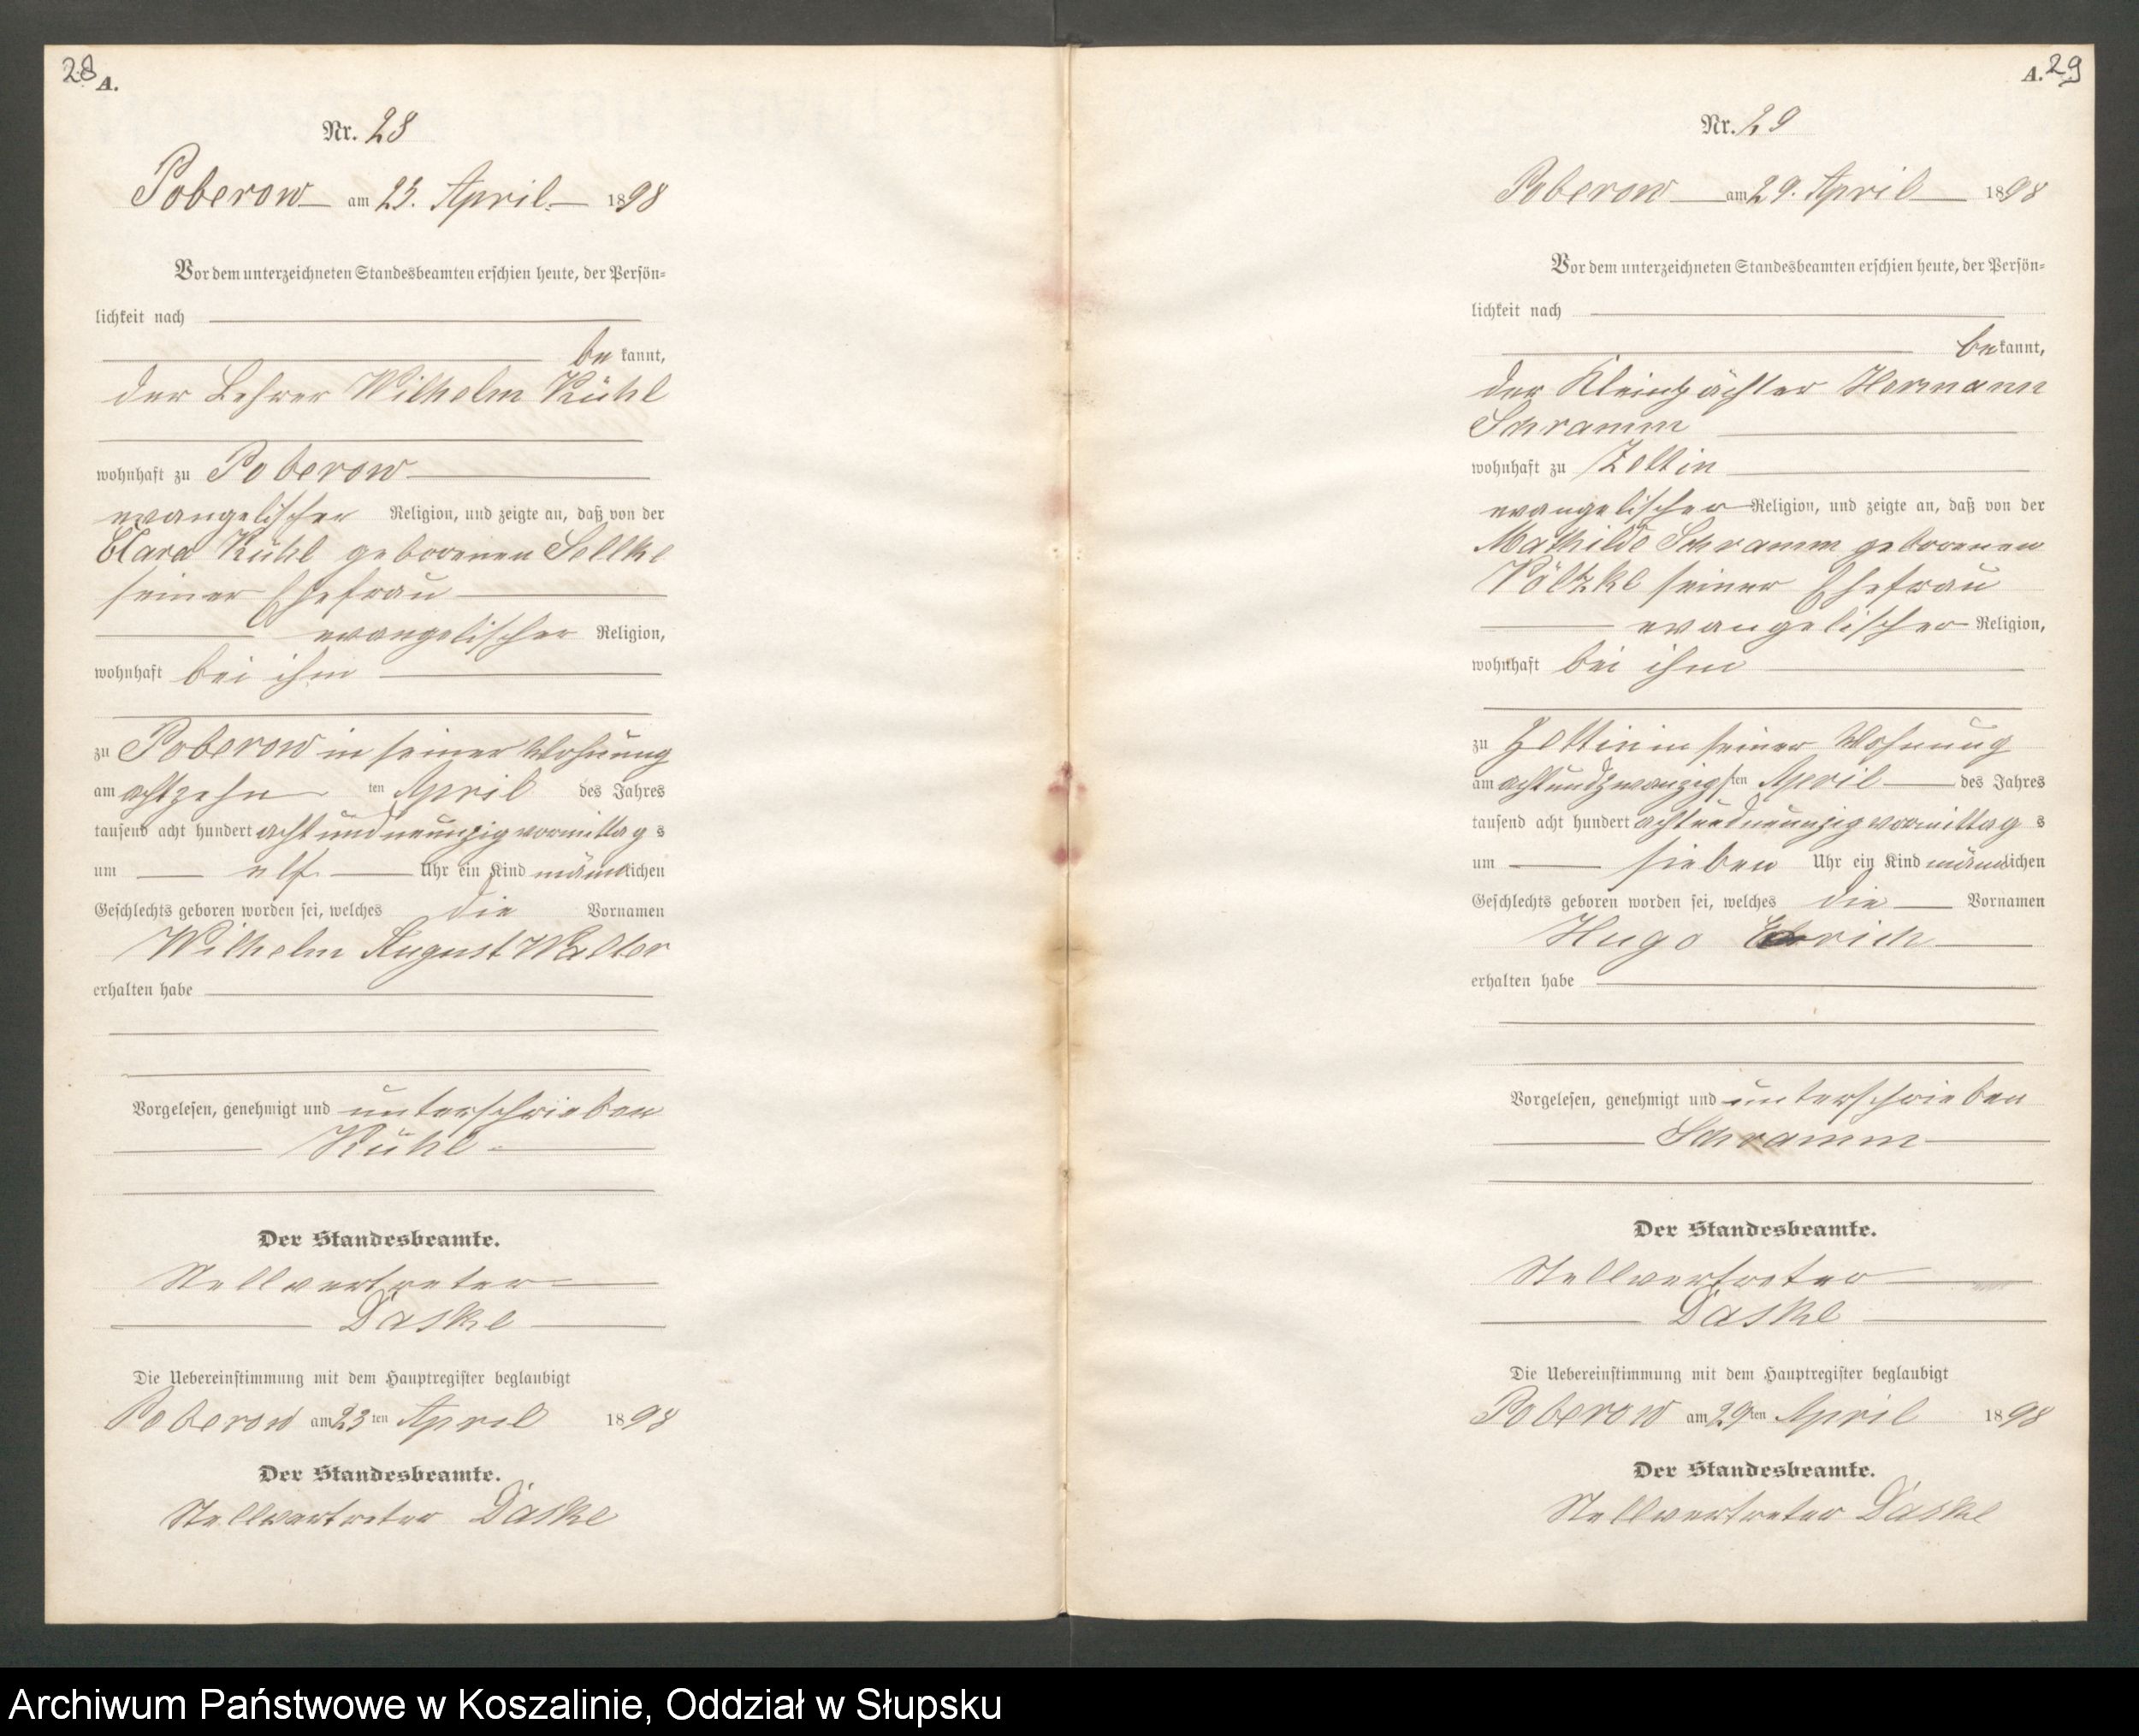 28
A.
Nr. 28
Poberow am 23. April 1898
Vor dem unterzeichneten Standesbeamten erschien heute, der Persön=
lichkeit nach
be kannt,
der Lehrer Wilhelm Kühl
wohnhaft zu Poberow
evangelischer Religion, und zeigte an, daß von der
Clara Kühl geborenen Sellke
seiner Ehefrau
evangelischer Religion,
wohnhaft bei ihm
zu Poberow in seiner Wohnung
am achtzehn ten April des Jahres
tausend acht hundert acht und neunzig vormittag s
um elf Uhr ein Kind männlichen
Geschlechts geboren worden sei, welches die Vornamen
Wilhelm August Walter
erhalten habe
Vorgelesen, genehmigt und unterschrieben
Kühl
Der Standesbeamte.
Stellvertreter
Daske
Die Uebereinstimmung mit dem Hauptregister beglaubigt
Poberow am 23 ten April 1898
Der Standesbeamte.
Stellvertreter Daske
A. 29
Nr. 29
Poberow am 29. April 1898
Vor dem unterzeichneten Standesbeamten erschien heute, der Persön=
lichkeit nach
bekannt,
der Kleinpächter Hermann
Schramm
wohnhaft zu Zettin
evangelischer Religion, und zeigte an, daß von der
Mathilde Schramm geborenen
Völzke seiner Ehefrau
evangelischer Religion,
wohnhaft bei ihm
zu Zettin in seiner Wohnung
am achtundzwanzigsten April des Jahres
tausend acht hundert acht und neunzig vormittag s
um sieben Uhr ein Kind männlichen
Geschlechts geboren worden sei, welches die Vornamen
Hugo Erich
erhalten habe
Vorgelesen, genehmigt und unterschrieben
Schramm
Der Standesbeamte.
Stellvertreter
Daske
Die Uebereinstimmung mit dem Hauptregister beglaubigt
Poberow am 29ten April 1898
Der Standesbeamte.
Stellvertreter Daske
Archiwum Państwowe w Koszalinie, Oddział w Słupsku